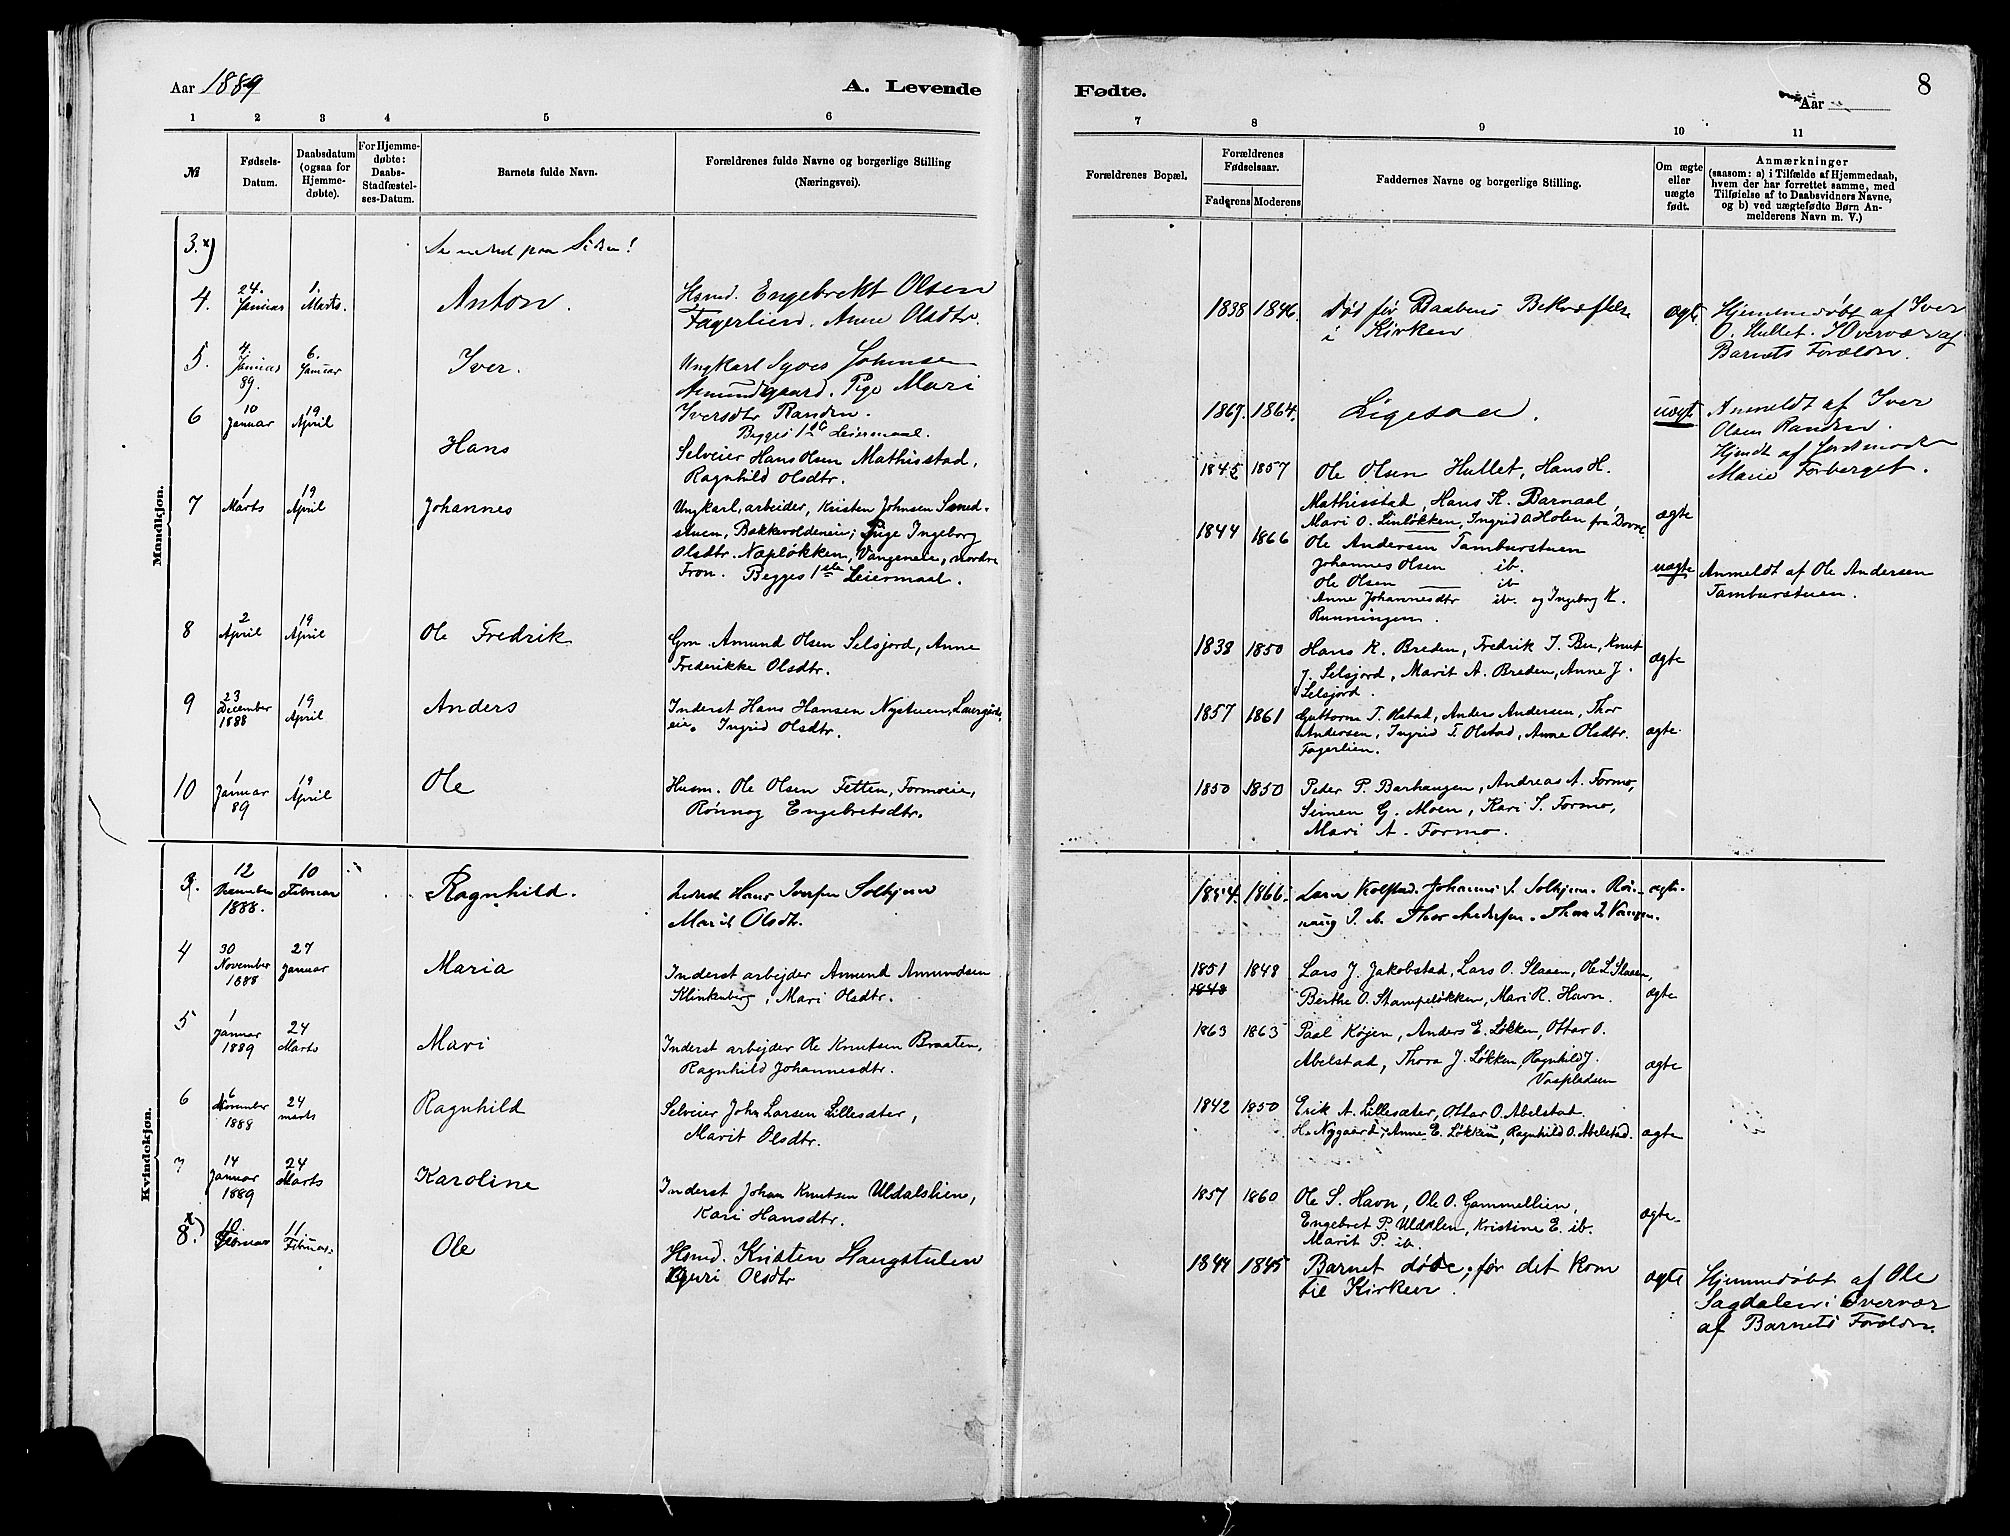 Aar 1889
A. Levende
1 2 3 4 5 6
№
Fødsels-
Datum.
Daabsdatum
(ogsaa for
Hjemme-
døbte).
For Hjemme-
døbte:
Daabs-
Stadfæstel-
ses-Datum.
Barnets fulde Navn.
Forældrenes fulde Navne og borgerlige Stilling
(Næringsvei).
Mandkjøn.
3. x) Se nederst paa Siden!
4. 24. Januar 1. Marts. Anton. Hsmd. Engebrekt Olsen
Fagerlien. Anne Olsdtr.
5. 4. Januar 89. 6. Januar Iver. Ungkarl Syver Johnsen
Amundgaard. Pige Mari
Iversdtr Randen.
Begges 1ste Leiermaal.
6 10 Januar 19 April Hans Selveier Hans Olsen Mathisstad,
Ragnhild Olsdtr.
7 1 Marts 19 April Johannes Ungkarl, arbeider, Kristen Johnsen Smed-
stuen, Bakkevoldeneie; Pige Ingeborg
Olsdtr. Napløkken, Vangeneie, nordre
Fron. Begges 1ste Leiermaal.
8 2 April 19 April Ole Fredrik Grn Amund Olsen Selsjord, Anne
Frederikke Olsdtr.
9 23 December 1888 19 April Anders Inderst Hans Hansen Nystuen, Laurgårds
eie. Ingrid Olsdtr.
10 1 Januar 89 19 April Ole Husm. Ole Olsen Fetten, Formoeie,
Rønnog Engebretsdtr.
Kvindekjøn.
3. 12 1888. 10 Februar Ragnhild. Inderst Hans Iversen Solhjem
Marit Olsdtr.
4 30 November 1888 27 Januar Maria Inderst arbejder Amund Amundsen
Klinkenberg, Mari Olsdtr.
5 1 Januar 1889 24 Marts Mari Inderst arbejder Ole Knutsen Braaten,
Ragnhild Johannesdtr.
6 6 November 1888 24 marts Ragnhild Selveier John Larsen Lillesæter,
Marit Olsdtr.
7 14 Januar 1889 24 Marts Karoline Inderst Johan Knutsen Uldalslien,
Kari Hansdtr.
8. x) 10 Februar 11 Februar. Ole Hsmd. Kristen Haugstulen
Guri Olsdtr
Fødte.
Aar
8
7 8 9 10 11
Forældrenes Bopæl.
Forældrenes
Fødselsaar.
Faderens Moderens
Faddernes Navne og borgerlige Stilling.
Om ægte
eller
uægte
født.
Anmærkninger
(saasom: a) i Tilfælde af Hjemmedaab,
hvem der har forrettet samme, med
Tilføielse af to Daabsvidners Navne,
og b) ved uægtefødte Børn An-
melderens Navn m. V.)
1838 1846. Død før Daabens Bekræftelse
i Kirken
ægte. Hjemmedøbt af Iver
O. Hullet. I Overvær af
Barnets Forældre.
1867. 1864. Ligesaa. uægte Anmeldt af Iver
Olsen Randen.
Hjemdt af Jordmoder
Marie Forberget.
1845 1857 Ole Olsen Hullet, Hans H.
Mathisstad, Hans K. Barnaal,
Mari O. Linløkken, Ingrid O. Holen fra Dovre
ægte
1844 1866 Ole Andersen Tamburstuen
Johannes Olsen ib.
Ole Olsen ib
Anne Johannesdtr ib. og Ingeborg K.
Runningen.
uægte Anmeldt af Ole Andersen
Tamburstuen.
1838 1850 Hans K. Breden, Fredrik I. Bu, Knut
J. Selsjord, Marit A. Breden, Anne J.
Selsjord.
ægte
1857 1861 Guttorm T. Olstad, Anders Andersen, Thor
Andersen, Ingrid T. Olstad, Anne Olsdtr.
Fagerlien.
ægte.
1850 1850 Peder P. Barhaugen, Andreas A. Formo,
Simen G. Moen, Kari S. Formo,
Mari A. Formo.
1854. 1866. Kolstad. Johannes I. Solhjem. Røn-
naug I. Thor Andersen. Thora I. Vangen.
ægte.
1851 1848 Lars J. Jakobstad, Lars O. Slaaen, Ole L. Slaaen,
1848 Berthe O. Stampeløkken, Mari R. Havn.
ægte
1863 1863 Paal Køjen, Anders E. Løkken, Ottar O.
Abelstad, Thora J. Løkken, Ragnhild J.
Vaspladsen
ægte
1842 1850 Erik A. Lillesæter, Ottar O. Abelstad.
H. Nygaard, Anne E. Løkken, Ragnhild O. Abelstad.
ægte
1857 1860 Ole S. Havn, Ole O. Gammellien,
Engebret P. Uldalen, Kristine E. ib.
Marit P. ib.
ægte.
1844 1845 Barnet døde, før det kom
til Kirken.
ægte Hjemmedøbt af Ole
Sagdalen i Overvær
af Barnets Forældre.